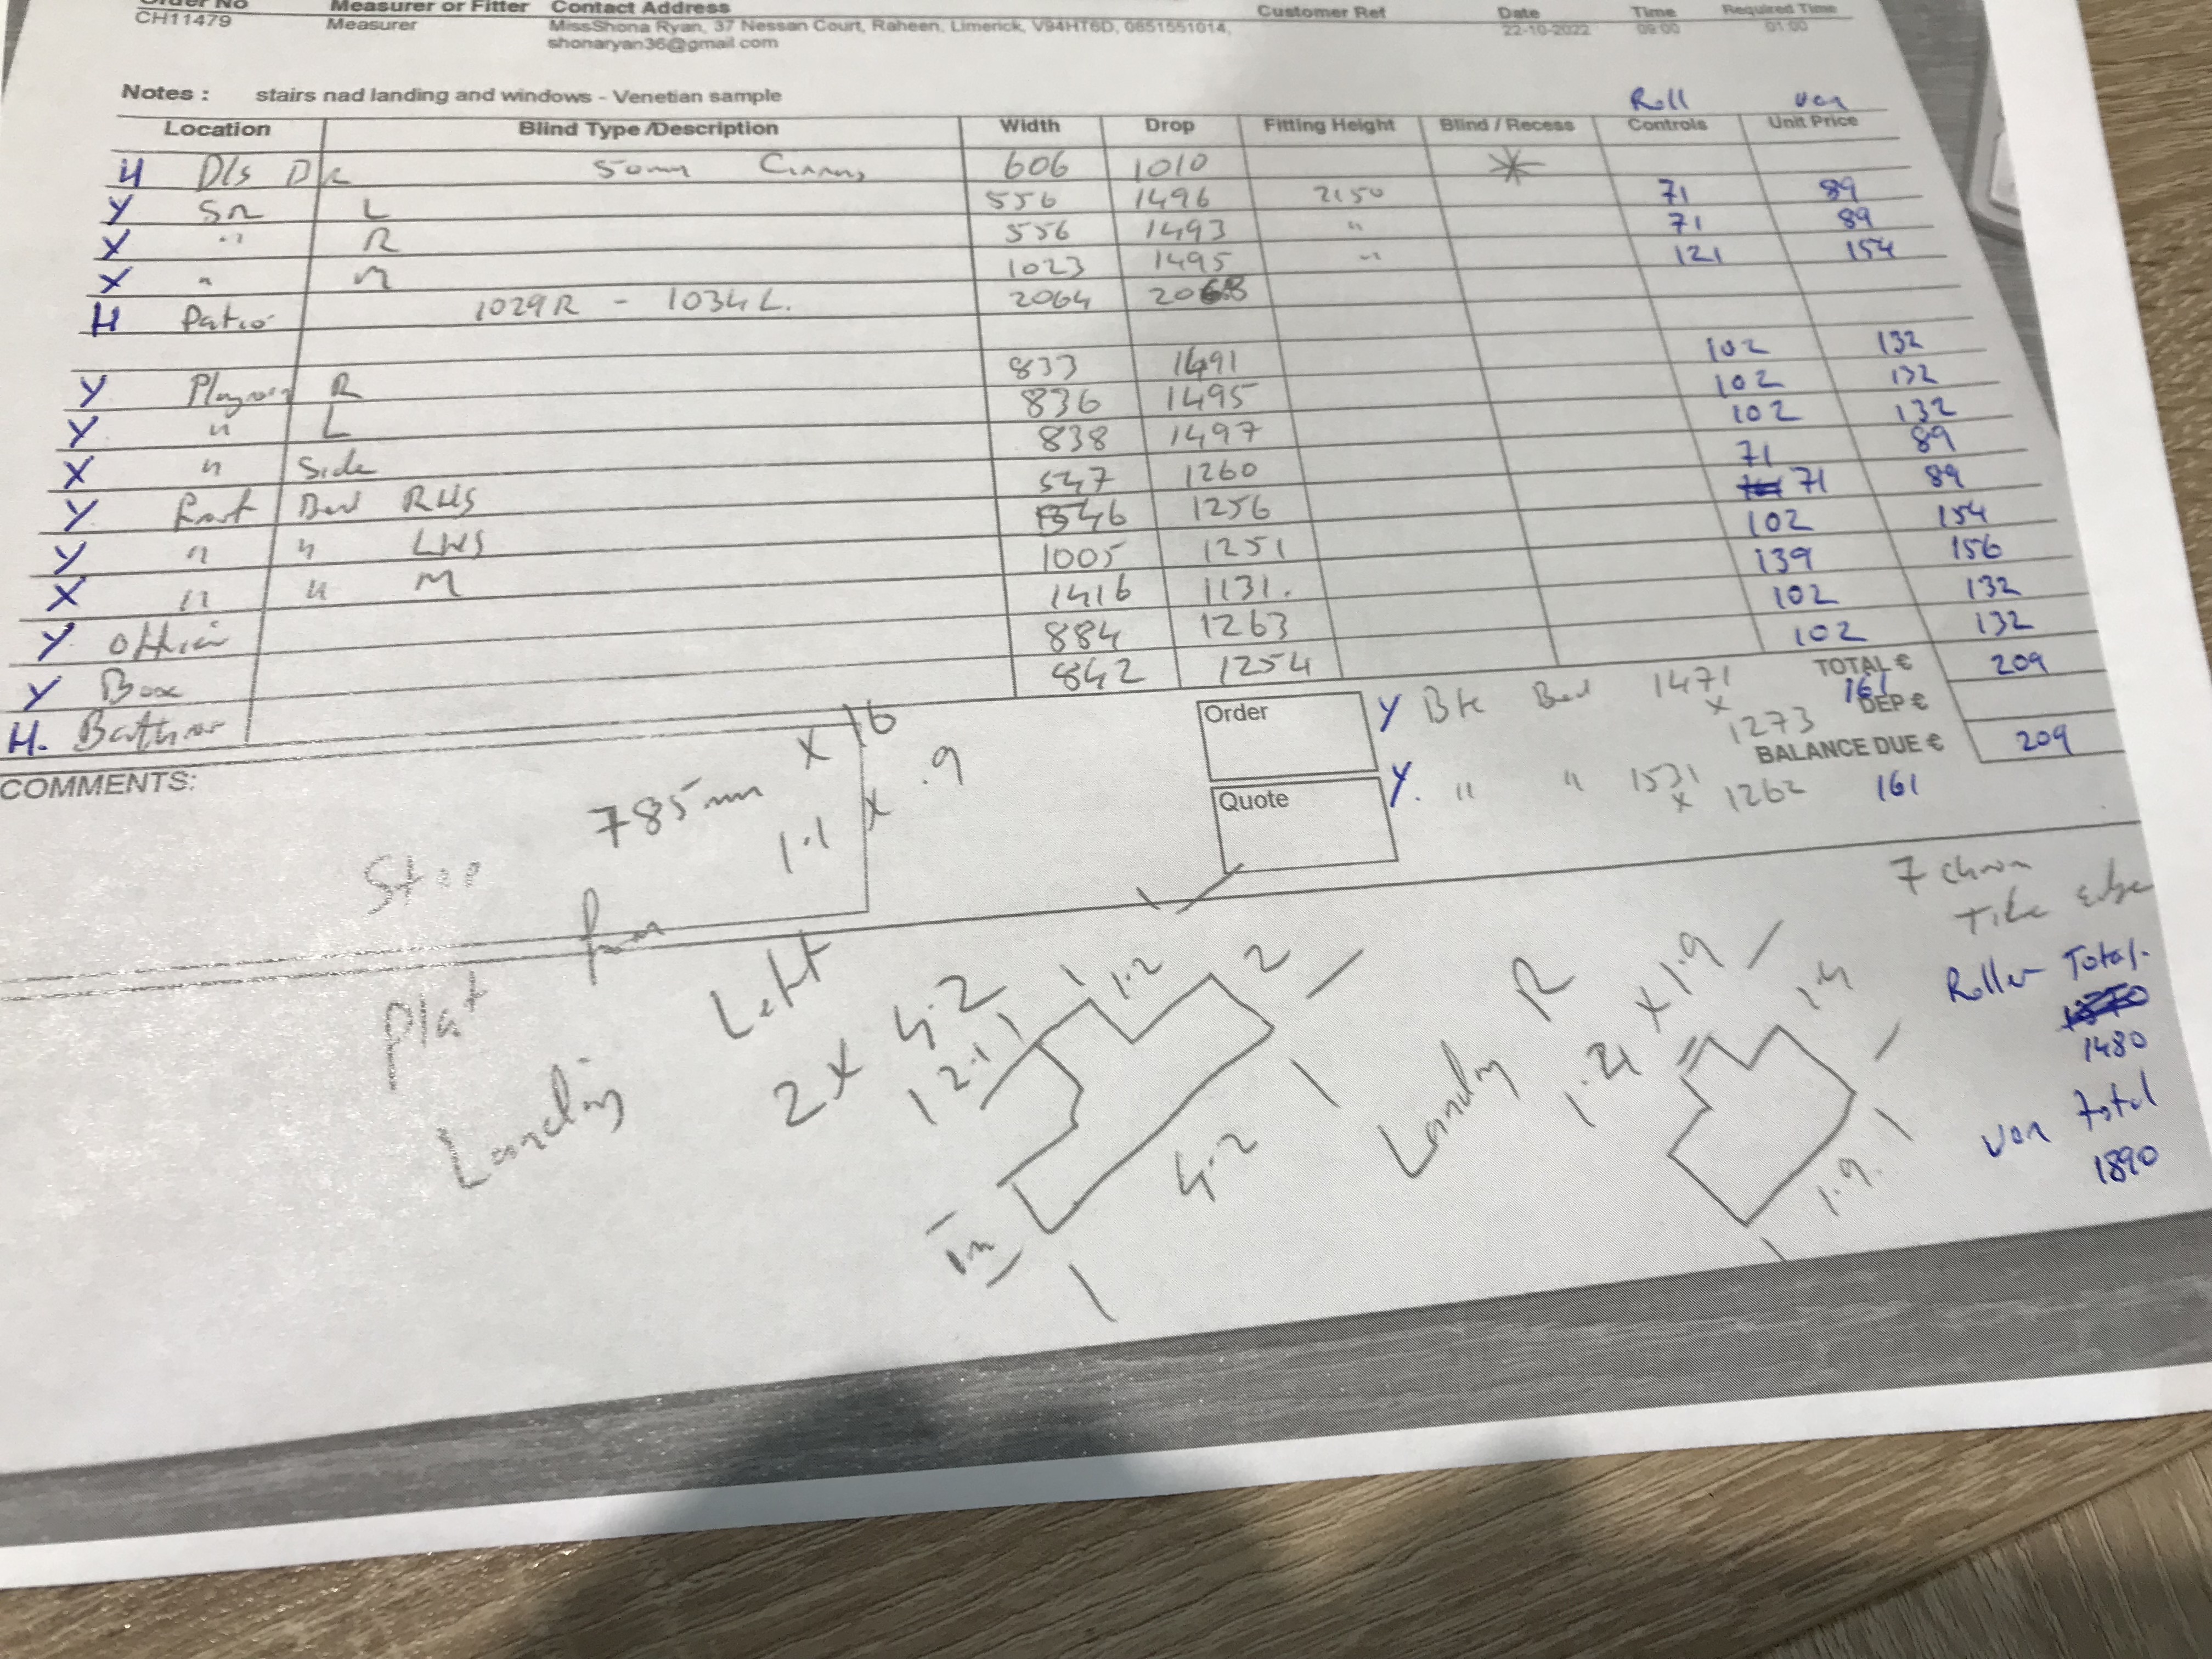 Order No Measurer or Fitter Contact Address Customer Ref Date Time Required Time
CH11479 Measurer MissShona Ryan, 37 Nessan Court, Raheen, Limerick, V94HT6D, 0851551014, 22-10-2022 09:00 01:00
shonaryan36@gmail.com
Notes : stairs nad landing and windows - Venetian sample
Roll Ven
Location Blind Type /Description Width Drop Fitting Height Blind / Recess Controls Unit Price
H D/s 50mm 606 1010 *
Y SR L 556 1496 2150 71 89
X " R 556 1493 " 71 89
X " M 1023 1495 " 121 154
H Patio 1029R - 1034L. 2064 2068
Y Playroom R 833 1491 102 132
Y " L 836 1495 102 132
X " Side 838 1497 102 132
Y Front Bed RHS 547 1260 71 89
Y " " LHS 546 1256 71 89
X " " M 1005 1251 102 154
Y Office 1416 1131. 139 156
Y Box 884 1263 102 132
H. Bathroom 842 1254 102 132
TOTAL € 209
Order Y Bk Bed 1471 x 1273 161
DEP €
BALANCE DUE € 209
Quote Y. " " 1531 x 1262 161
COMMENTS:
785mm x 16
1.1 x .9
Plat
Landing Left
2 x 4.2
2.1 1.2 2
4.2
1m
Landing R
1.21 x 1.9
1.4
1.9.
7 chrom
Tile edge
Roller Total.
1480
Ven total
1890